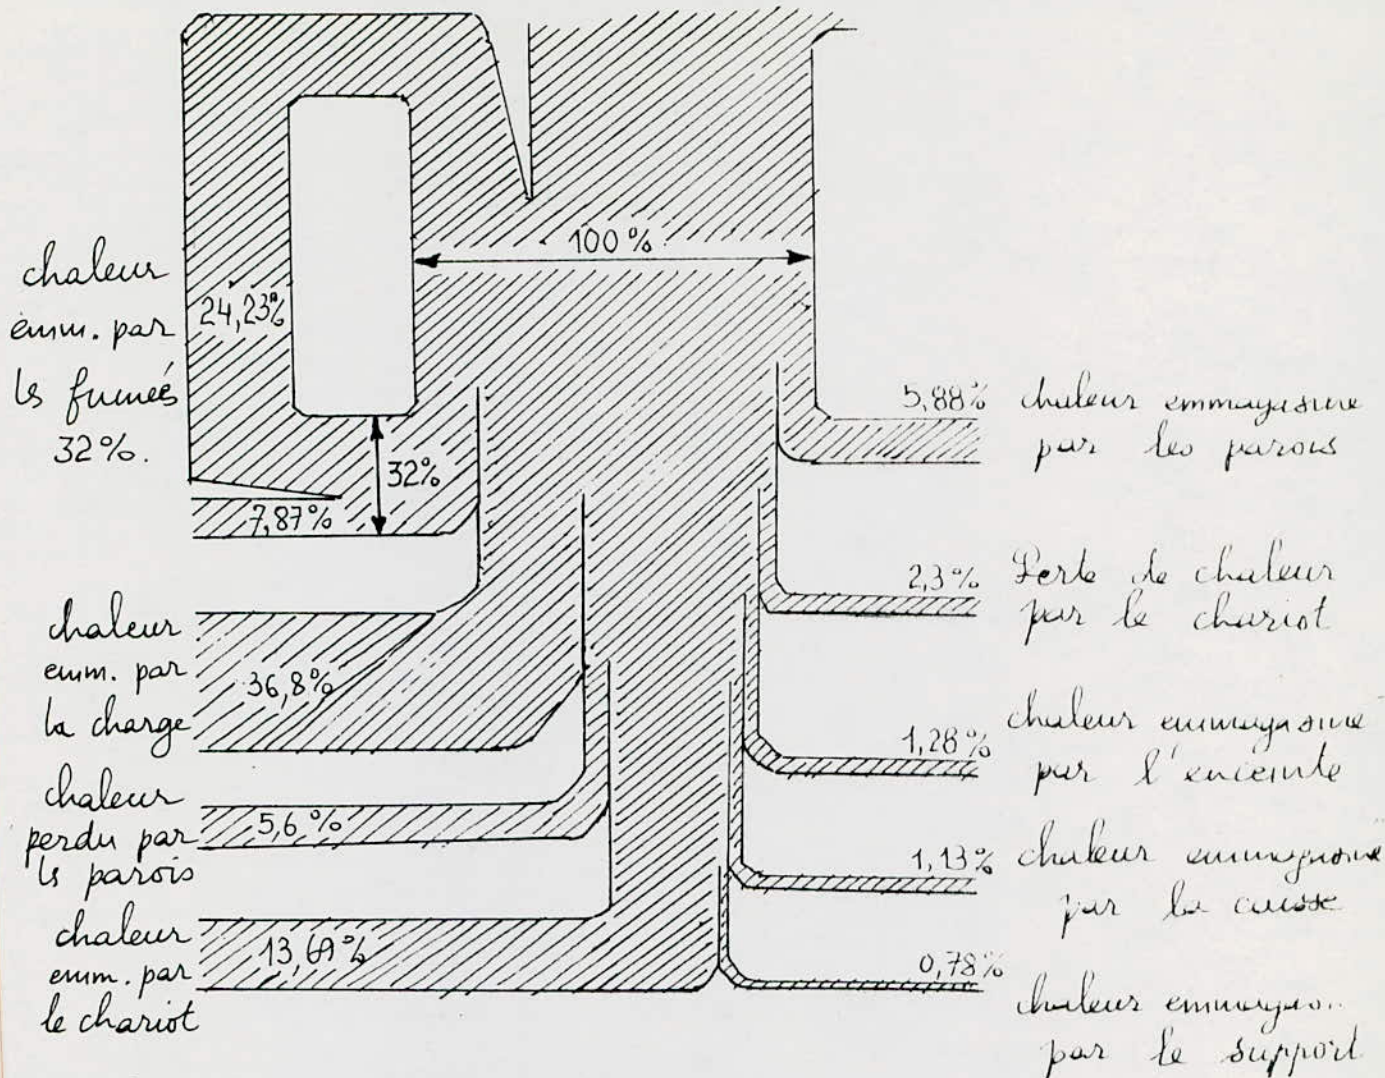 100%
chaleur
emm. par
ls fumeés
32%.
24,23%
32%
7,87%
chaleur
emm. par
la charge
36,8%
chaleur
perdu par
ls parois
5,6%
chaleur
emm. par
le chariot
13,69%
5,88% chaleur emmagasine
par les parois
2,3% Perte de chaleur
par le chariot
1,28% chaleur emmagasine
par l'enceinte
1,13% chaleur emmagasine
par la caisse
0,78%
chaleur emmagas..
par le support